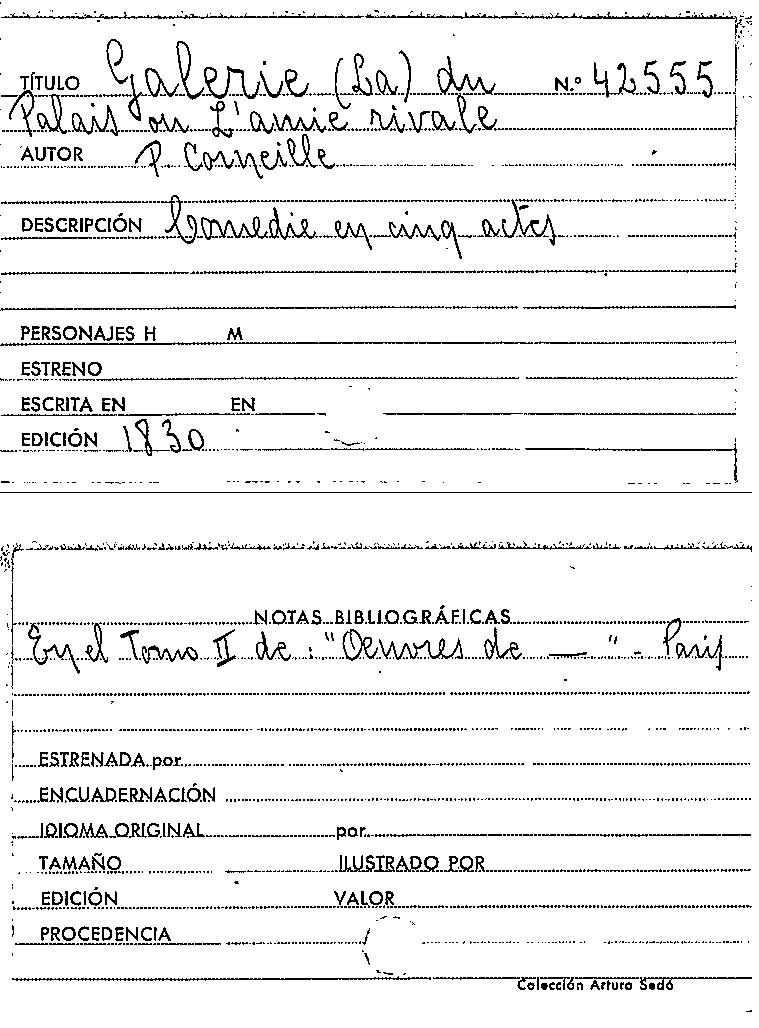 TÍTULO Galerie (La) du N.º 42555
Palais ou L'amie rivale
AUTOR P. Corneille
DESCRIPCIÓN Comedie en cinq actes
PERSONAJES H M
ESTRENO
ESCRITA EN EN
EDICIÓN 1830
NOTAS BIBLIOGRÁFICAS
En el Tomo II de: "Oeuvres de — " - Paris
ESTRENADA por
ENCUADERNACIÓN
IDIOMA ORIGINAL por
TAMAÑO ILUSTRADO POR
EDICIÓN VALOR
PROCEDENCIA
Colección Arturo Sedó